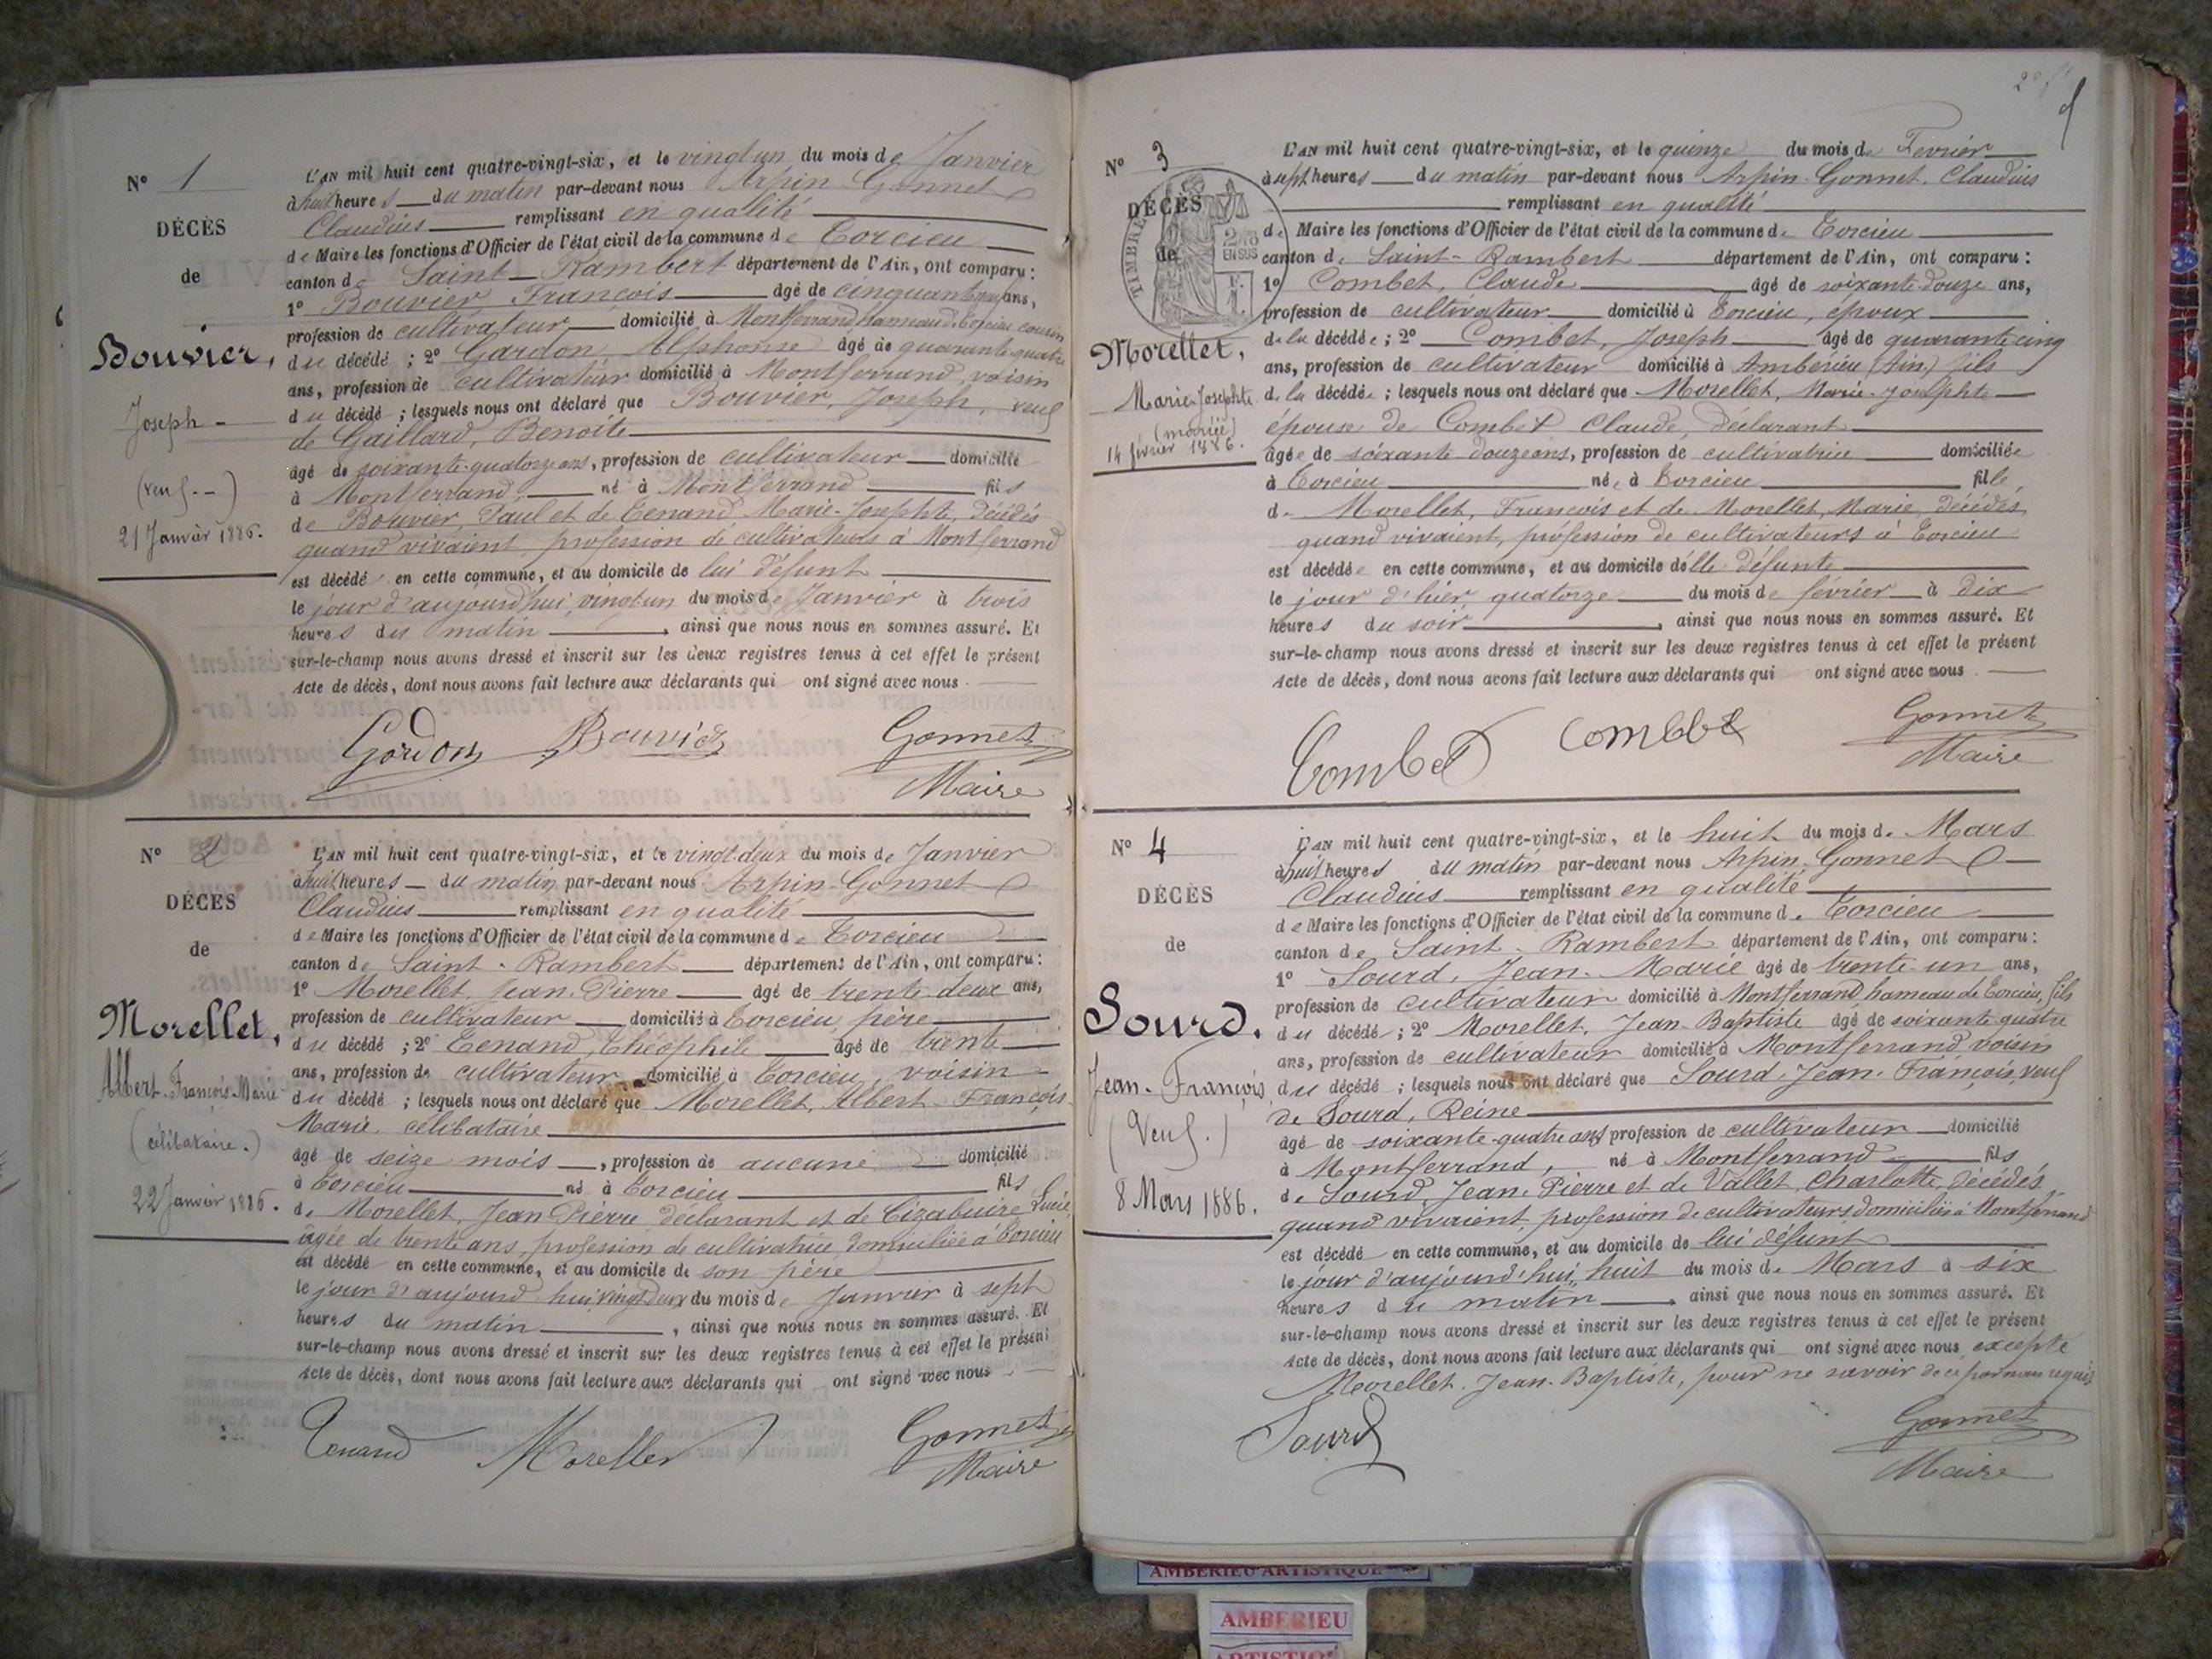 N° 1
DÉCÈS
de
Bouvier,
Joseph -
(veuf. -)
21 Janvier 1886.
L'AN mil huit cent quatre-vingt-six, et le vingt un du mois de Janvier
à huit heures du matin par-devant nous Arpin-Gonnet
Claudius remplissant en qualité
de Maire les fonctions d'Officier de l'état civil de la commune de Torcieu
canton de Saint-Rambert département de l'Ain, ont comparu :
1° Bouvier, François âgé de ans,
profession de cultivateur domicilié à Montferrand hameau de Torcieu cousin
du décédé ; 2° Gardon, Alphonse âgé de quarante quatre
ans, profession de cultivateur domicilié à Montferrand, voisin
du décédé ; lesquels nous ont déclaré que Bouvier, Joseph, veuf
de Gaillard, Benoite
âgé de soixante-quatorze ans, profession de cultivateur domicilié
à Montferrand, né à Montferrand fils
de Bouvier, Paul et de Tenand Marie-Josephte, décédés
quand vivaient, profession de cultivateurs à Montferrand
est décédé en cette commune, et au domicile de lui défunt
le jour d'aujourd'hui vingt un du mois de Janvier à trois
heures du matin , ainsi que nous nous en sommes assuré. Et
sur-le-champ nous avons dressé et inscrit sur les deux registres tenus à cet effet le présent
Acte de décès, dont nous avons fait lecture aux déclarants qui ont signé avec nous.
Gordon Bouvier Gonnet
Maire
N° 2
DÉCÈS
de
Morellet,
Albert-François-Marie
(célibataire.)
22 Janvier 1886.
L'AN mil huit cent quatre-vingt-six, et le vingt-deux du mois de Janvier
à huit heures du matin par-devant nous Arpin-Gonnet
Claudius remplissant en qualité
de Maire les fonctions d'Officier de l'état civil de la commune de Torcieu
canton de Saint-Rambert département de l'Ain, ont comparu :
1° Morellet, Jean-Pierre âgé de trente-deux ans,
profession de cultivateur domicilié à Torcieu, père
du décédé ; 2° Tenand, Théophile âgé de trente
ans, profession de cultivateur domicilié à Torcieu, voisin
du décédé ; lesquels nous ont déclaré que Morellet, Albert-François-
Marie, célibataire
âgé de seize mois, profession de aucune domicilié
à Torcieu né à Torcieu fils
de Morellet, Jean Pierre déclarant et de Lucie,
âgée de trente ans, profession de cultivatrice, domiciliée à Torcieu
est décédé en cette commune, et au domicile de son père
le jour d'aujourd'hui vingt deux du mois de Janvier à sept
heures du matin , ainsi que nous nous en sommes assuré. Et
sur-le-champ nous avons dressé et inscrit sur les deux registres tenus à cet effet le présent
Acte de décès, dont nous avons fait lecture aux déclarants qui ont signé avec nous
Tenand Morellet Gonnet
Maire
N° 3
DÉCÈS
de
TIMBRE
2/10
EN SUS
Morellet,
Marie-Josephte
(mariée)
14 février 1886.
L'AN mil huit cent quatre-vingt-six, et le quinze du mois de Fevrier
à sept heures du matin par-devant nous Arpin-Gonnet, Claudius
remplissant en qualité
de Maire les fonctions d'Officier de l'état civil de la commune de Torcieu
canton de Saint-Rambert département de l'Ain, ont comparu :
1° Combet, Claude âgé de soixante-douze ans,
profession de cultivateur domicilié à Torcieu, époux
de la décédée ; 2° Combet, Joseph âgé de quarante-cinq
ans, profession de cultivateur domicilié à Ambérieu (Ain) fils
de la décédée ; lesquels nous ont déclaré que Morellet, Marie-Josephte
épouse de Combet Claude, déclarant
âgée de soixante douze ans, profession de cultivatrice domiciliée
à Torcieu née à Torcieu fille
de Morellet, François et de Morellet, Marie, décédés
quand vivaient, profession de cultivateurs à Torcieu
est décédée en cette commune, et au domicile d'elle défunte
le jour d'hier, quatorze du mois de février à dix
heures du soir , ainsi que nous nous en sommes assuré. Et
sur-le-champ nous avons dressé et inscrit sur les deux registres tenus à cet effet le présent
Acte de décès, dont nous avons fait lecture aux déclarants qui ont signé avec nous.
Combet Combet Gonnet
Maire
N° 4
DÉCÈS
de
Sourd.
Jean-François
(Veuf.)
8 Mars 1886.
L'AN mil huit cent quatre-vingt-six, et le huit du mois de Mars
à huit heures du matin par-devant nous Arpin-Gonnet
Claudius remplissant en qualité
de Maire les fonctions d'Officier de l'état civil de la commune de Torcieu
canton de Saint-Rambert département de l'Ain, ont comparu :
1° Sourd, Jean-Marie âgé de trente-un ans,
profession de cultivateur domicilié à Montferrand, hameau de Torcieu, fils
du décédé ; 2° Morellet, Jean-Baptiste âgé de soixante quatre
ans, profession de cultivateur domicilié à Montferrand, voisin
du décédé ; lesquels nous ont déclaré que Sourd, Jean-François, veuf
de Sourd, Reine
âgé de soixante-quatre ans, profession de cultivateur domicilié
à Montferrand, né à Montferrand fils
de Sourd, Jean-Pierre et de Vallet, Charlotte, décédés,
quand vivaient, profession de cultivateurs domiciliés à Montferrand
est décédé en cette commune, et au domicile de lui défunt
le jour d'aujourd'hui, huit du mois de Mars à six
heures du matin , ainsi que nous nous en sommes assuré. Et
sur-le-champ nous avons dressé et inscrit sur les deux registres tenus à cet effet le présent
Acte de décès, dont nous avons fait lecture aux déclarants qui ont signé avec nous, excepté
Morellet, Jean-Baptiste, pour ne savoir de ce par nous requis
Sourd Gonnet
Maire
AMBERIEU ARTISTIQUE
AMBERIEU
ARTISTIQUE